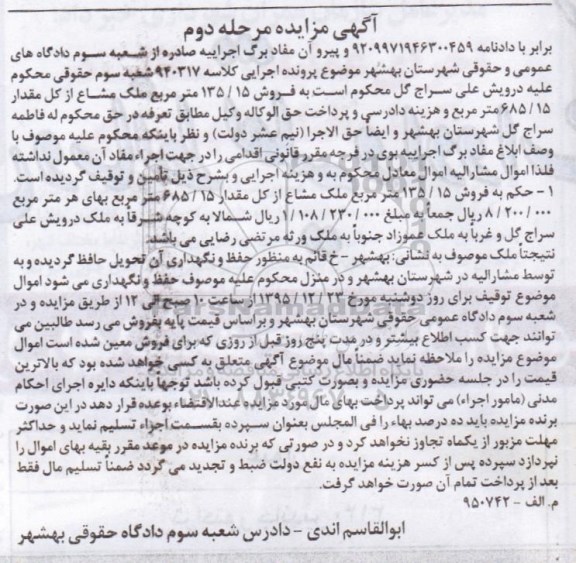 آگهی مزایده مرحله دوم
برابر با دادنامه ۹۲۰۹۹۷۱۹۴۶۳۰۰۴۵۹ و پیرو آن مفاد برگ اجراییه صادره از شعبه سوم دادگاه های
عمومی و حقوقی شهرستان بهشهر موضوع پرونده اجرایی کلاسه ۹۴۰۳۱۷ شعبه سوم حقوقی محکوم
علیه درویش علی سراج گل محکوم است به فروش ۱۵/ ۱۳۵ متر مربع ملک مشاع از کل مقدار
۱۵/ ۶۸۵ متر مربع و هزینه دادرسی و پرداخت حق الوکاله وکیل مطابق تعرفه در حق محکوم له فاطمه
سراج گل شهرستان بهشهر و ایضاً حق الاجرا (نیم عشر دولت) و نظر باینکه محکوم علیه موصوف با
وصف ابلاغ مفاد برگ اجراییه بوی در فرجه مقرر قانونی اقدامی را در جهت اجراء مفاد آن معمول نداشته
فلذا اموال مشارالیه اموال معادل محکوم به و هزینه اجرایی و بشرح ذیل تأمین و توقیف گردیده است.
۱ - حکم به فروش ۱۵/ ۱۳۵ متر مربع ملک مشاع از کل مقدار ۱۵/ ۶۸۵ متر مربع بهای هر متر مربع
۸/۲۰۰/۰۰۰ ریال جمعاً به مبلغ ۱/۱۰۸/۲۳۰/۰۰۰ ریال شمالا به کوچه شرقاً به ملک درویش علی
سراج گل و غرباً به ملک عموزاد جنوباً به ملک ورثه مرتضی رضایی می باشد.
نتیجتاً ملک موصوف به نشانی: بهشهر - خ قائم به منظور حفظ و نگهداری آن تحویل حافظ گردیده و به
توسط مشارالیه در شهرستان بهشهر و در منزل محکوم علیه موصوف حفظ و نگهداری می شود اموال
موضوع توقیف برای روز دوشنبه مورخ ۲۳/ ۱۲/ ۱۳۹۵ از ساعت ۱۰ صبح الی ۱۲ از طریق مزایده و در
شعبه سوم دادگاه عمومی حقوقی شهرستان بهشهر و براساس قیمت پایه بفروش می رسد طالبین می
توانند جهت کسب اطلاع بیشتر و در مدت پنج روز قبل از روزی که برای فروش معین شده است اموال
موضوع مزایده را ملاحظه نماید ضمناً مال موضوع آگهی متعلق به کسی خواهد شده بود که بالاترین
قیمت را در جلسه حضوری مزایده و بصورت کتبی قبول کرده باشد توجهاً باینکه دایره اجرای احکام
مدنی (مامور اجراء) می تواند پرداخت بهای مال مورد مزایده عندالاقتضاء بوعده قرار دهد در این صورت
برنده مزایده باید ده درصد بهاء را فی المجلس بعنوان سپرده بقسمت اجراء تسلیم نماید و حداکثر
مهلت مزبور از یکماه تجاوز نخواهد کرد و در صورتی که برنده مزایده در موعد مقرر بقیه بهای اموال را
نپردازد سپرده پس از کسر هزینه مزایده به نفع دولت ضبط و تجدید می گردد ضمناً تسلیم مال فقط
بعد از پرداخت تمام آن صورت خواهد گرفت.
م. الف - ۹۵۰۷۴۲
ابوالقاسم اندی - دادرس شعبه سوم دادگاه حقوقی بهشهر